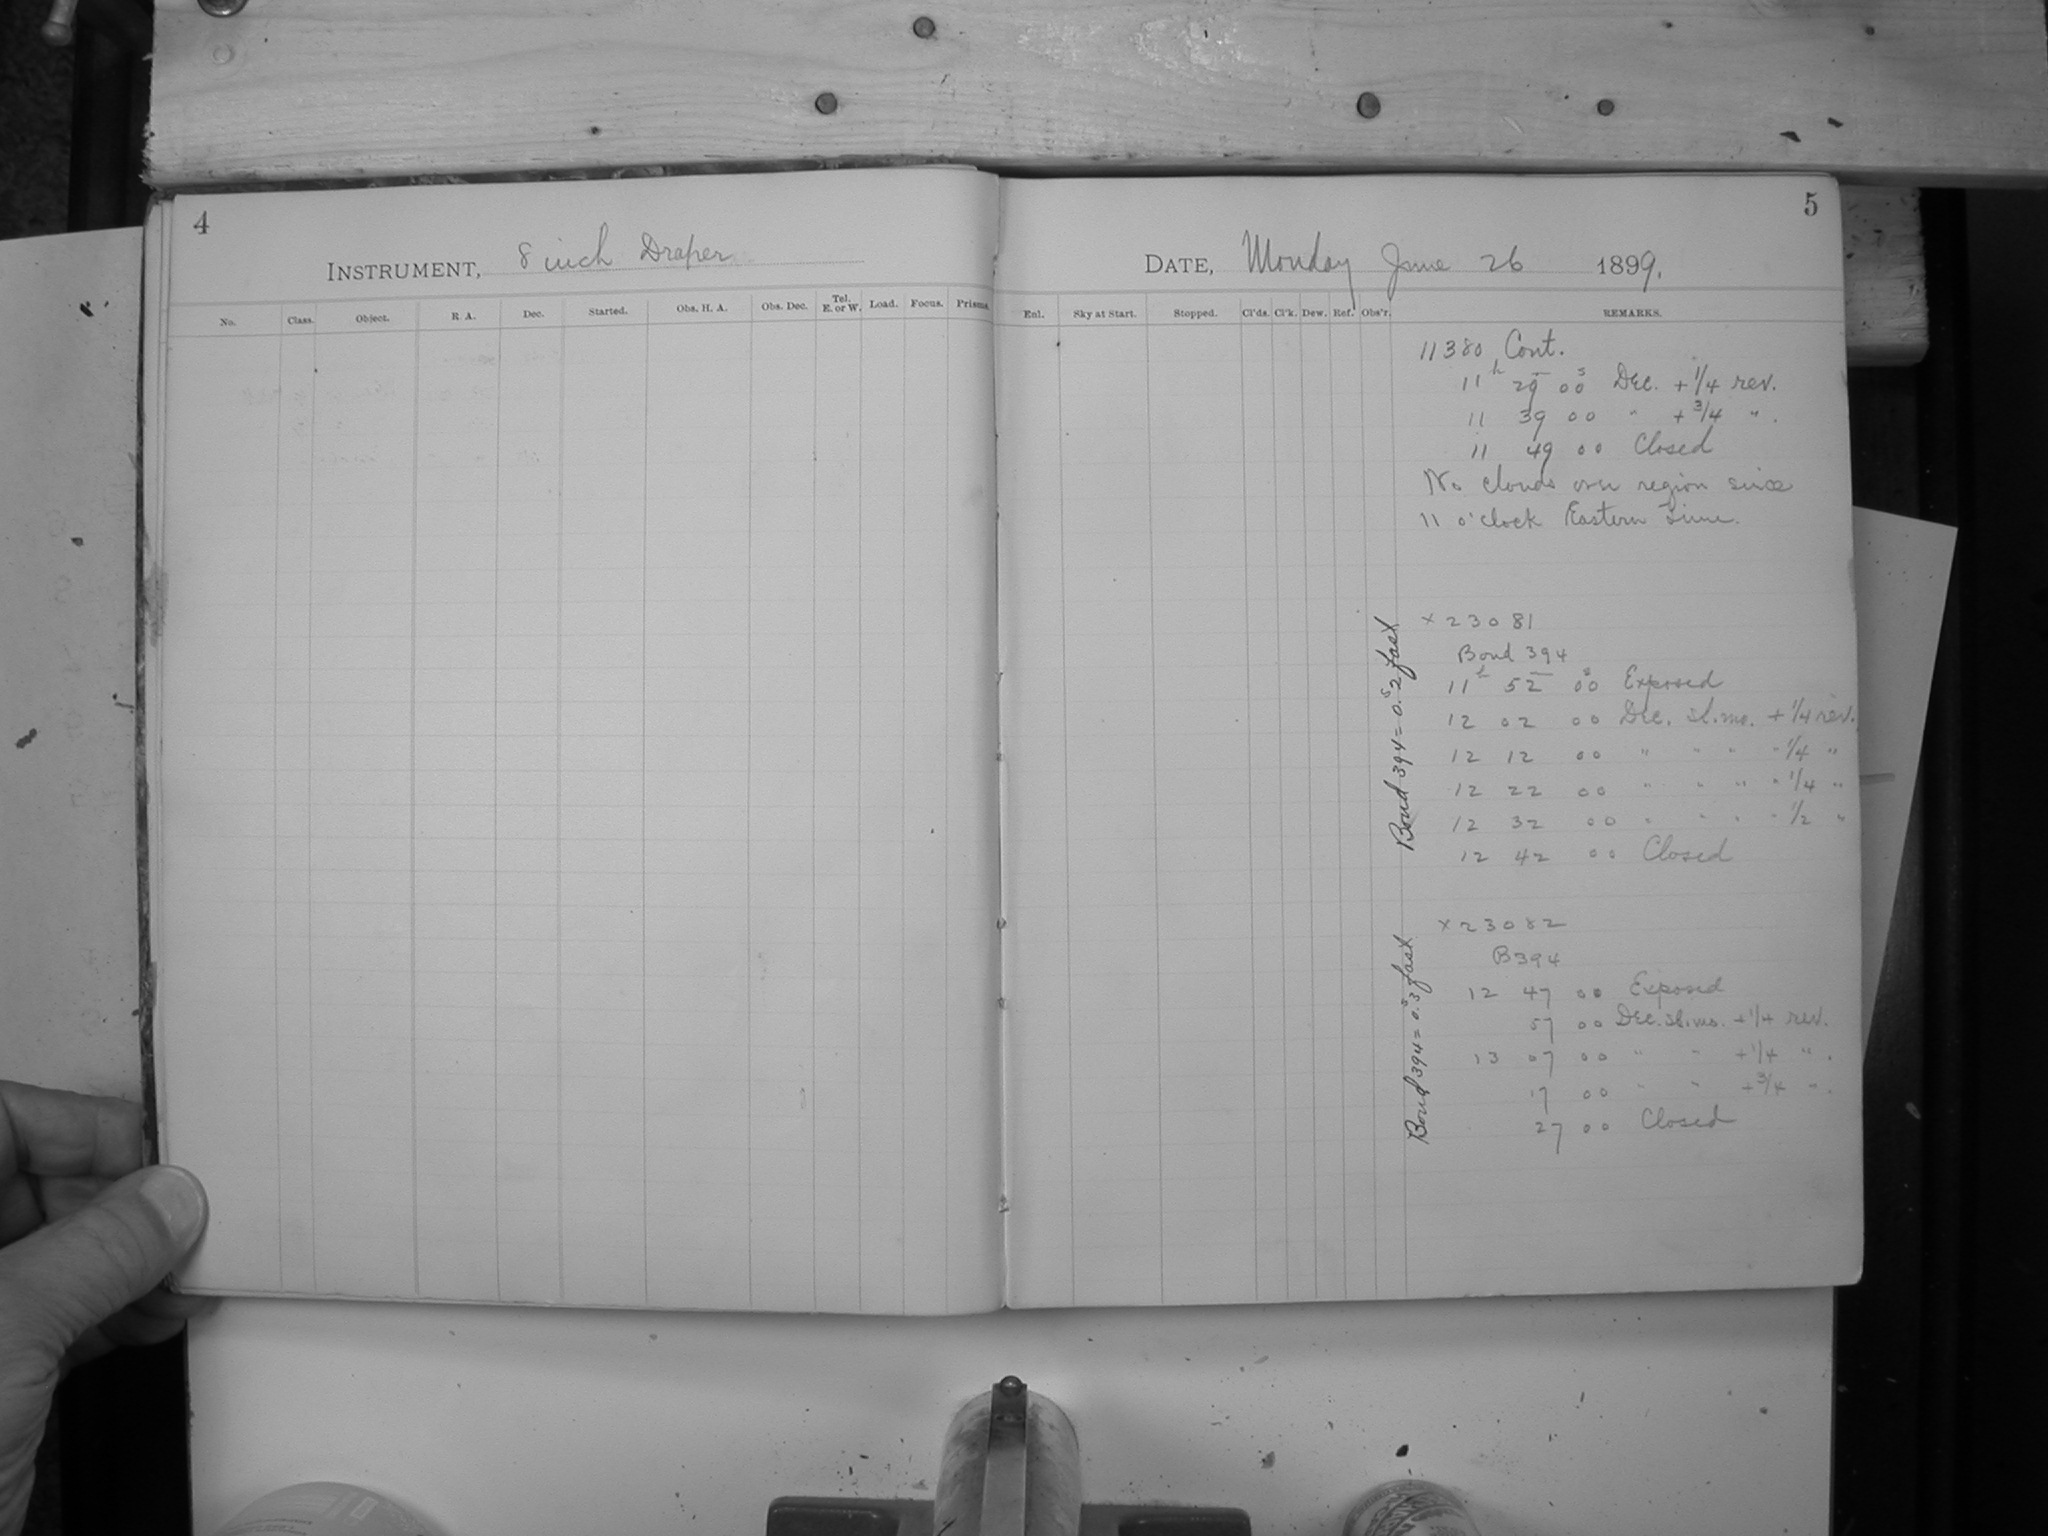 4
INSTRUMENT, 8 inch Draper
No. Class. Object. R. A. Dec. Started. Obs. H. A. Obs. Dec. Tel. E. or W. Load. Focus. Prisms.
5
DATE, Monday June 26 1899.
Enl. Sky at Start. Stopped. Cl'ds. Cl'k. Dew. Ref. Obs'r. REMARKS.
11380 Cont.
11h 29m 00s Dec. + 1/4 rev.
11 39 00 " + 3/4 ".
11 49 00 Closed
No clouds over region since
11 o'clock Eastern Time.
Bond 394 = 0.s2 fast
x 23081
Bond 394
11h 52m 00s Exposed
12 02 00 Dec. sl. mo. + 1/4 rev.
12 12 00 " " " " 1/4 "
12 22 00 " " " " 1/4 "
12 32 00 " " " " 1/2 "
12 42 00 Closed
Bond 394 = 0.s3 fast
x 23082
B394
12 47 00 Exposed
57 00 Dec. sl. mo. + 1/4 rev.
13 07 00 " " + 1/4 ".
17 00 " " + 3/4 ".
27 00 Closed